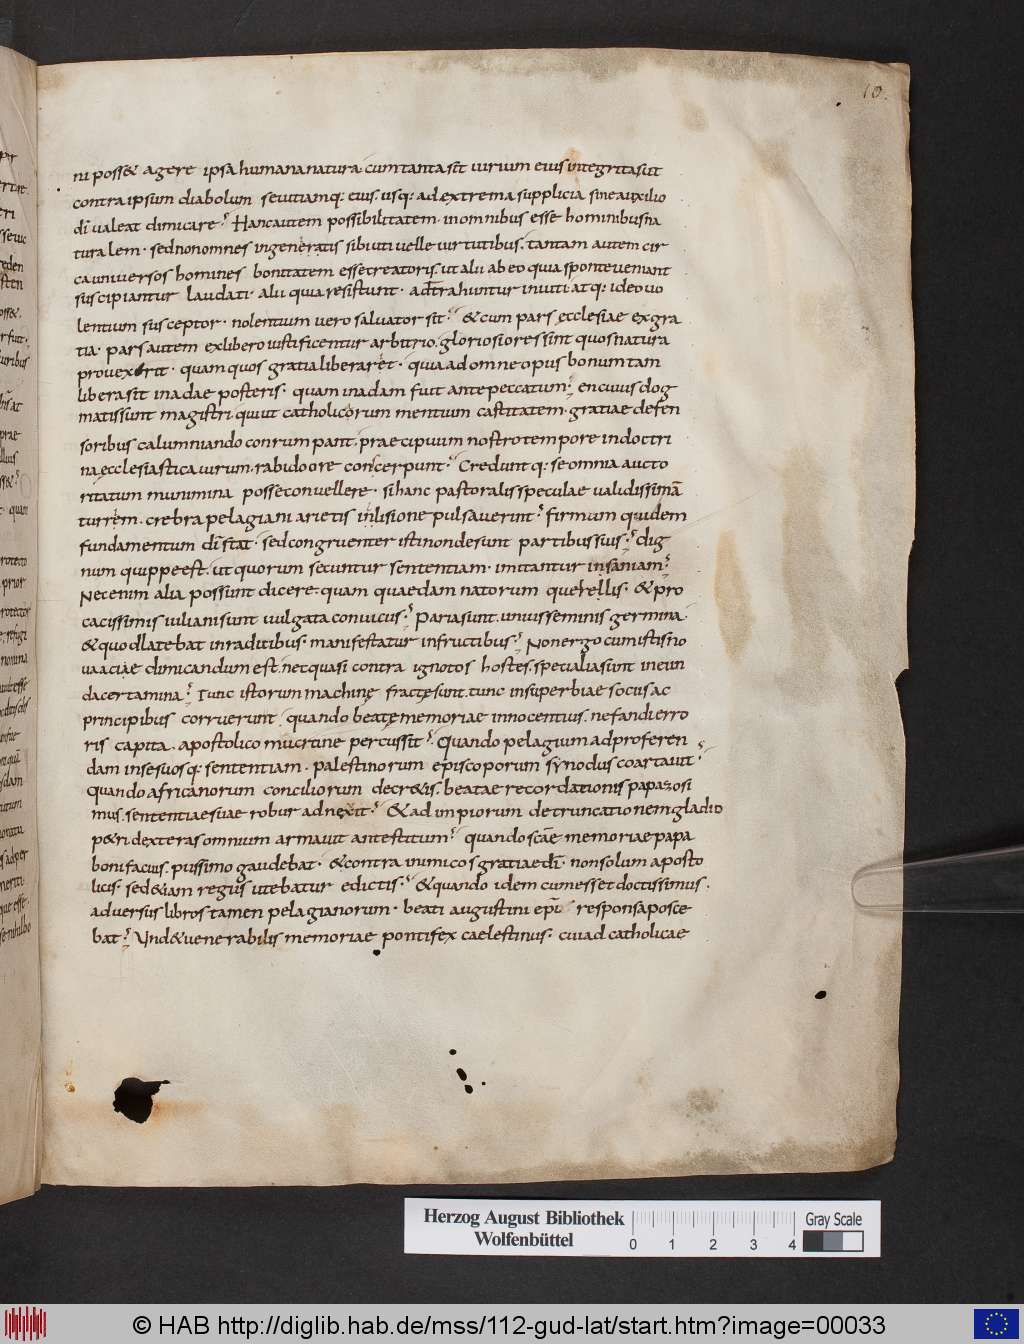 10.
ni poss& agere ipsa humana natura. cum tanta sit uirium eius integritas ut
contra ipsum diabolum seuitiamq: eius. usq: ad extrema supplicia sine auxilio
dī ualeat dimicare? Hanc autem possibilitatem. in omnibus esse hominibus na
turalem. sed non omnes ingeneratis sibi uti uelle uirtutibus. tantam autem cir
ca uniuersos homines bonitatem esse creatoris. ut alii ab eo quia sponte ueniant
suscipiantur laudati. alii quia resistunt. adtrahuntur inuiti. atq: ideo uo
lentium susceptor. nolentium uero saluator sit? & cum pars ęcclesiae ex gra
tia. pars autem ex libero iustificentur arbitrio. gloriosiores sint quos natura
prouexerit. quam quos gratia liberaret. quia ad omne opus bonum tam
libera sit in adae posteris. quam in adam fuit ante peccatum? en cuius dog
matis sunt magistri qui ut catholicorum mentium castitatem. gratiae defen
soribus calumniando conrumpant. praecipuum nostro tempore in doctri
na ęcclesiastica uirum. rabido ore concerpunt? Creduntq: se omnia aucto
ritatum munimina posse conuellere. si hanc pastoralis speculae ualidissimā
turrem. crebra pelagiani arietis inlisione pulsauerint? firmum quidem
fundamentum dī stat. sed congruenter isti non desunt partibus suis? dig
num quippe est. ut quorum secuntur sententiam. imitantur insaniam?
Nec enim alia possunt dicere. quam quae damnatorum querellis. & pro
cacissimis iulianis sunt uulgata conuiciis? Paria sunt. unius seminis germina.
& quod latebat in radicibus. manifestatur in fructibus? Non ergo cum istis no
ua aciae dimicandum est. nec quasi contra ignotos hostes. specialia sunt ineun
da certamina? Tunc istorum machinę fractę sunt. tunc in superbiae sociis ac
principibus corruerunt. quando beatę memoriae innocentius. nefandi erro
ris capita. apostolico mucrone percussit? Quando pelagium ad proferen
dam in se suosq: sententiam. palestinorum episcoporum synodus coartauit?
quando africanorum conciliorum decr&is. beatae recordationis papa zosi
mus. sententiae suae robur adnexit? & ad impiorum detruncationem gladio
p&ri dexteras omnium armauit antestitum? quando scāe memoriae papa
bonifacius. piissimo gaudebat. & contra inimicos gratiae dī. non solum aposto
licis. sed &iam regiis utebatur edictis? & quando idem cum esset doctissimus.
aduersus libros tamen pelagianorum. beati augustini epī responsa posce
bat? Vnd& uenerabilis memoriae pontifex caelestinus. cui ad catholicae
Herzog August Bibliothek
Wolfenbüttel
0 1 2 3 4
Gray Scale
© HAB http://diglib.hab.de/mss/112-gud-lat/start.htm?image=00033